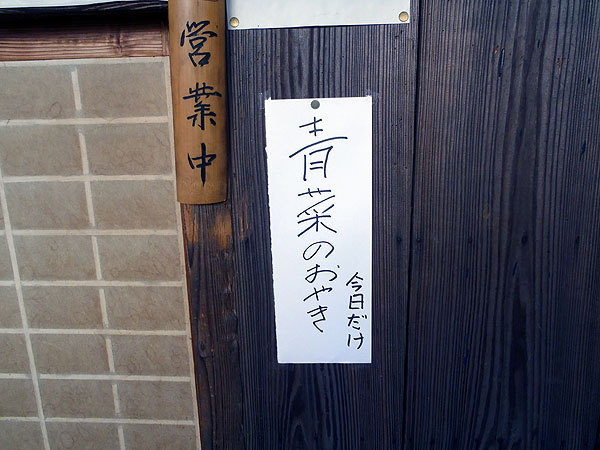 営業中
青菜のおやき
今日だけ